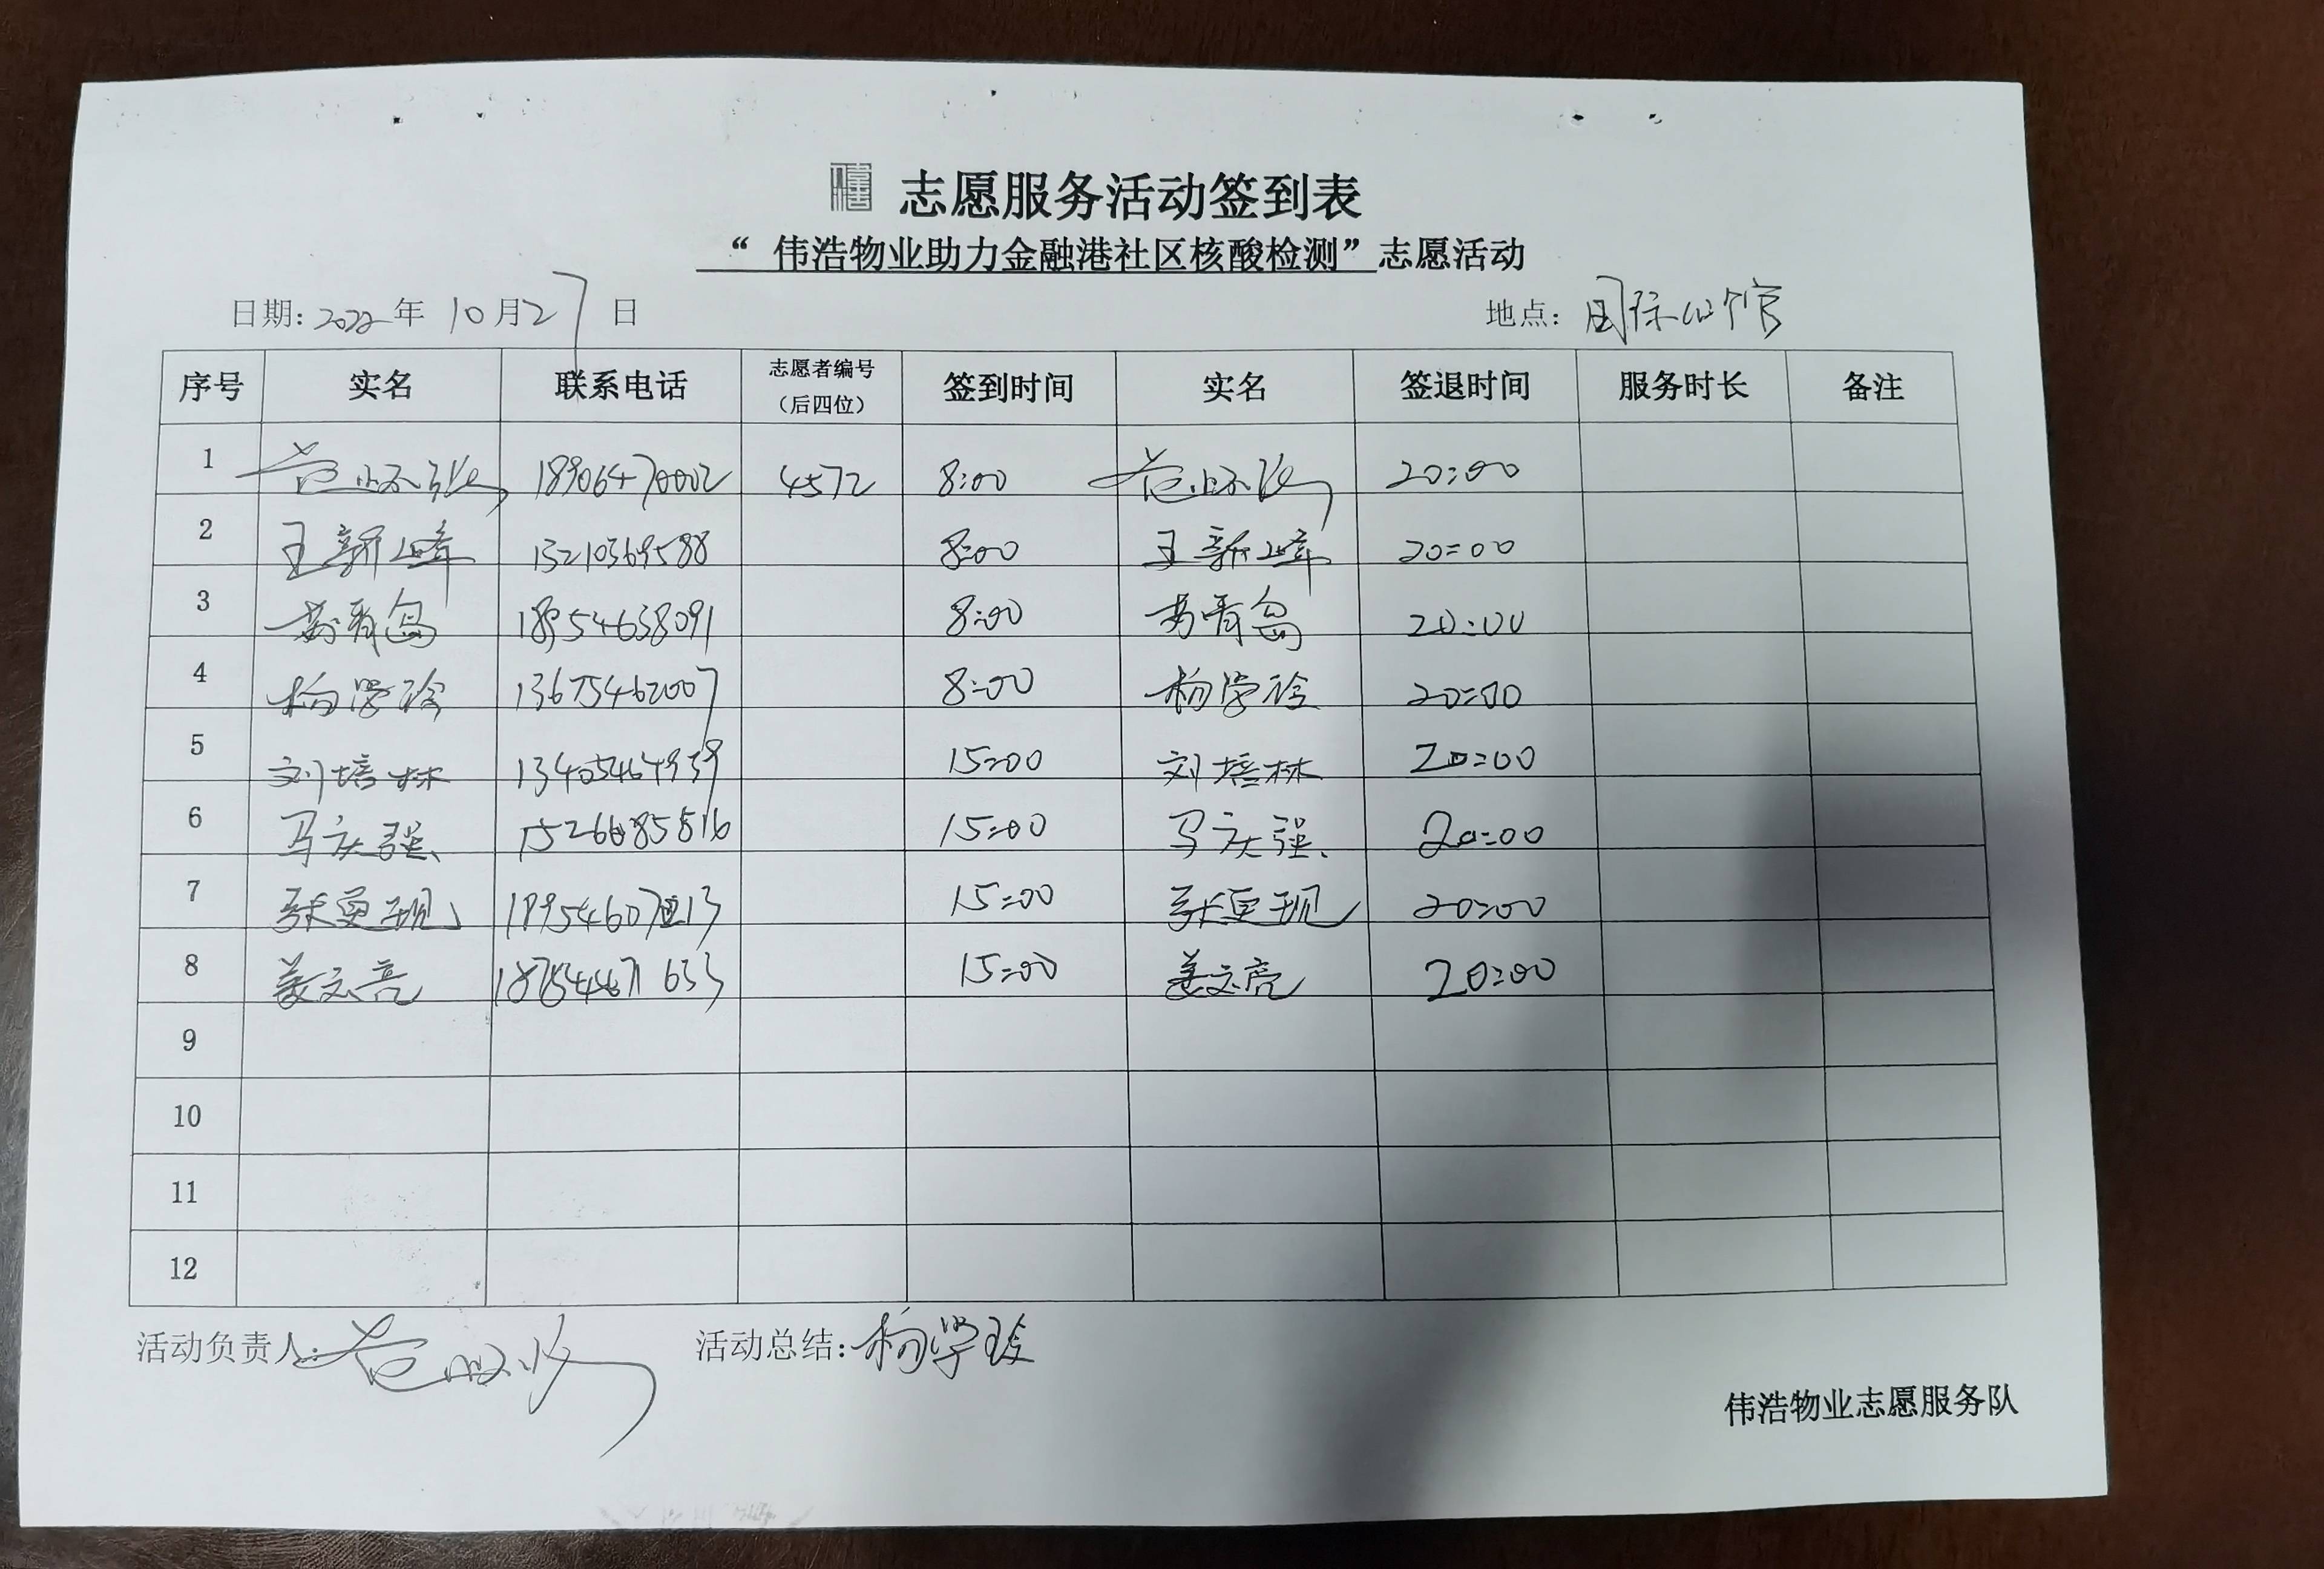 志愿服务活动签到表
“ 伟浩物业助力金融港社区核酸检测”志愿活动
日期: 2022年 10月27日 地点: 国际公馆
序号 实名 联系电话 志愿者编号（后四位） 签到时间 实名 签退时间 服务时长 备注
1 18906470002 4572 8:00 20:00
2 王新峰 13210369588 8:00 王新峰 20:00
3 青岛 18954638091 8:00 青岛 20:00
4 杨学 13675462007 8:00 杨学 20:00
5 刘培林 13405464959 15:00 刘培林 20:00
6 马庆强 15266885816 15:00 马庆强 20:00
7 张更现 15:00 张更现 20:00
8 姜文亮 15:00 姜文亮 20:00
9
10
11
12
活动负责人: 活动总结: 杨学玲
伟浩物业志愿服务队